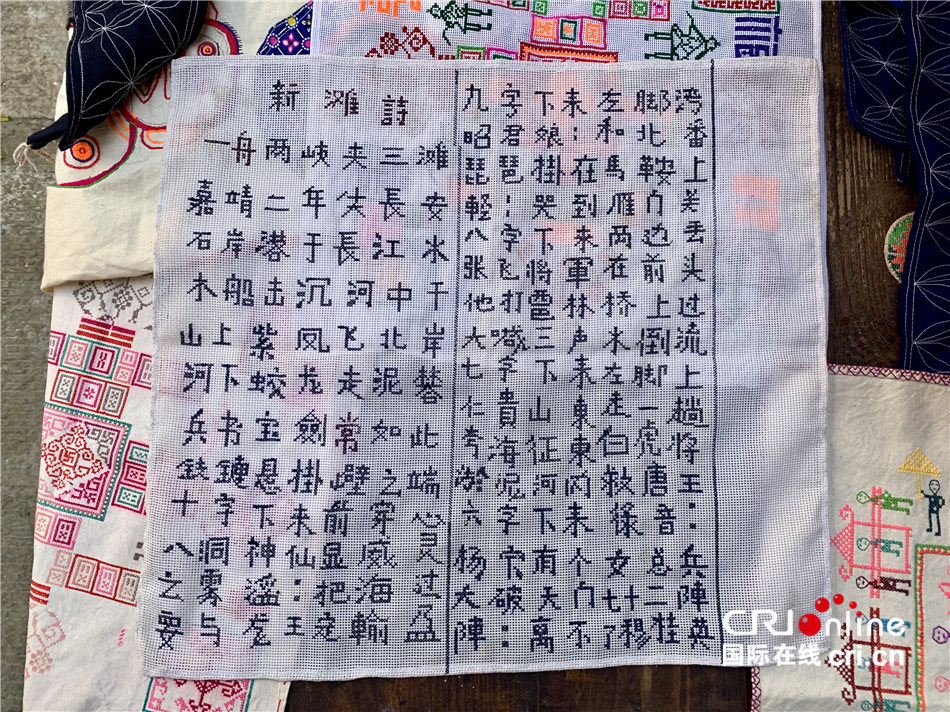 新滩詩
一舟两峡夹三滩
嘉靖二年尖長安
石岸潜于長江水
木船击沉河中干
山上紫凤飞北岸
河下蛟龙走泥蟠
兵书宝劍常如此
鉄鏈悬掛壁之端
十字下来前穿心
八洞神仙显威
之雲遥:把海过
要与老王定輸盈
九字下来左脚湾
昭君娘:和北番
琵琶掛在馬鞍上
軽:哭到雁门关
八字下来两边丢
张飞将軍在前头
他打霸林桥上过
大喊三声水倒流
七字下来左脚上
仁貴山東走一趟
夸海征東白虎将
淤泥河内救唐王
六字下来徐音:
杨宍有个女总兵
大破天门七十二陣
陣:离不了穆桂英
CRI Online
国际在线 cri.cn